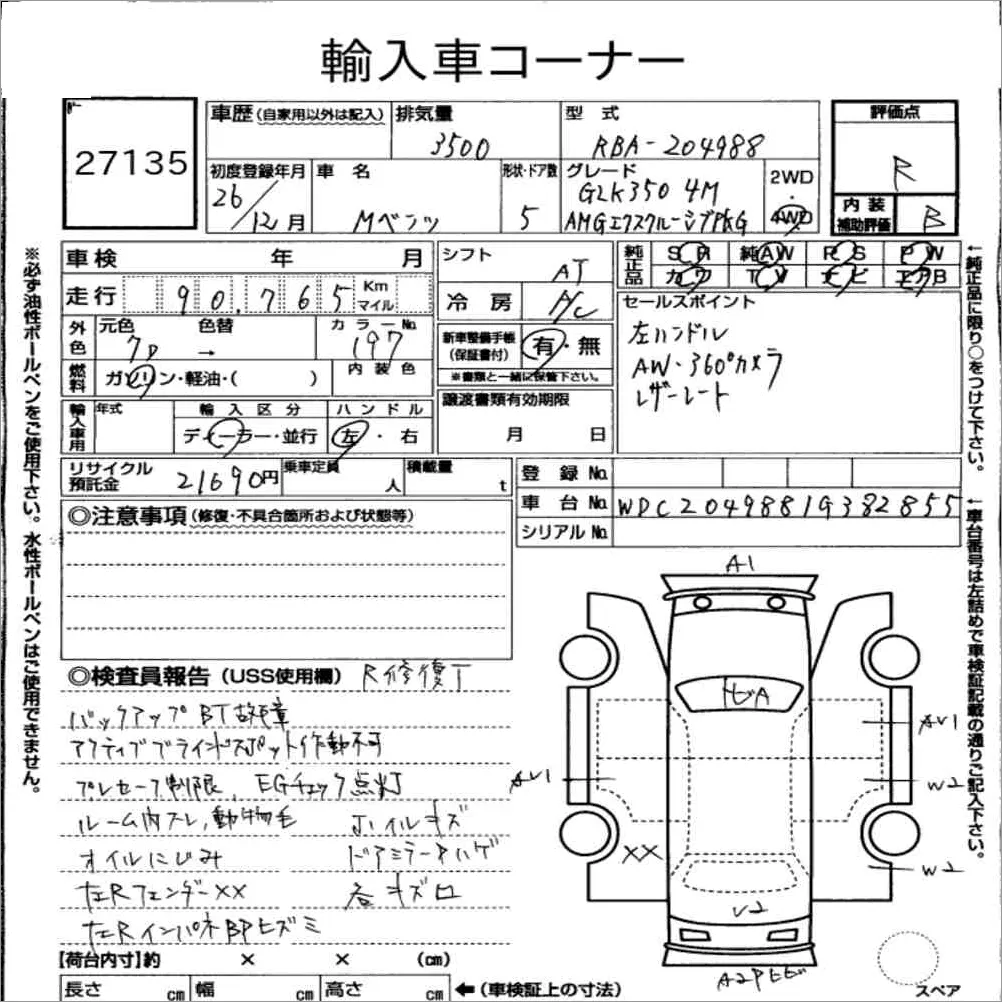 輸入車コーナー
27135
車歴 (自家用以外は記入)
排気量
3500
型式
RBA-204988
評価点
R
初度登録年月
26/12月
車名
Mベンツ
形状・ドア数
5
グレード
GLK350 4M
AMGエクスクルーシブPKG
2WD
4WD
内装
補助評価
B
車検 年 月
走行 90,765 Km
マイル
シフト
AT
冷房
A/C
純正品
SR 純AW PS PW
カワ TV ナビ エアB
外色
元色 色替
カラーNo.
197
燃料
ガソリン・軽油・( )
内装色
新車整備手帳
(保証書付)
有・無
※書類と一緒に保管下さい。
セールスポイント
左ハンドル
AW・360°カメラ
レザーシート
輸入車用
年式
輸入区分
ディーラー・並行
ハンドル
左・右
譲渡書類有効期限
月 日
リサイクル
預託金
21690円
乗車定員
人
積載量
t
登録No.
車台No. WDC2049881G382855
シリアルNo.
◎注意事項 (修復・不具合箇所および状態等)
◎検査員報告 (USS使用欄) R修復T
バックアップBT故障
アクティブブラインドスポット作動不可
プレセーフ制限、EGチェック点灯
ルーム内スレ、動物毛 ホイルキズ
オイルにじみ ドアミラーPハゲ
左Rフェンダーxx 各キズロ
左RインパネBPヒズミ
A1
セA
AU1
AU1
W2
W2
XX
U2
スペア
【荷台内寸】約 × × (cm)
長さ cm 幅 cm 高さ cm ←(車検証上の寸法)
※必ず油性ボールペンをご使用下さい。水性ボールペンはご使用できません。
←純正品に限り○をつけて下さい。
←車台番号は左詰めで車検証記載の通りご記入下さい。